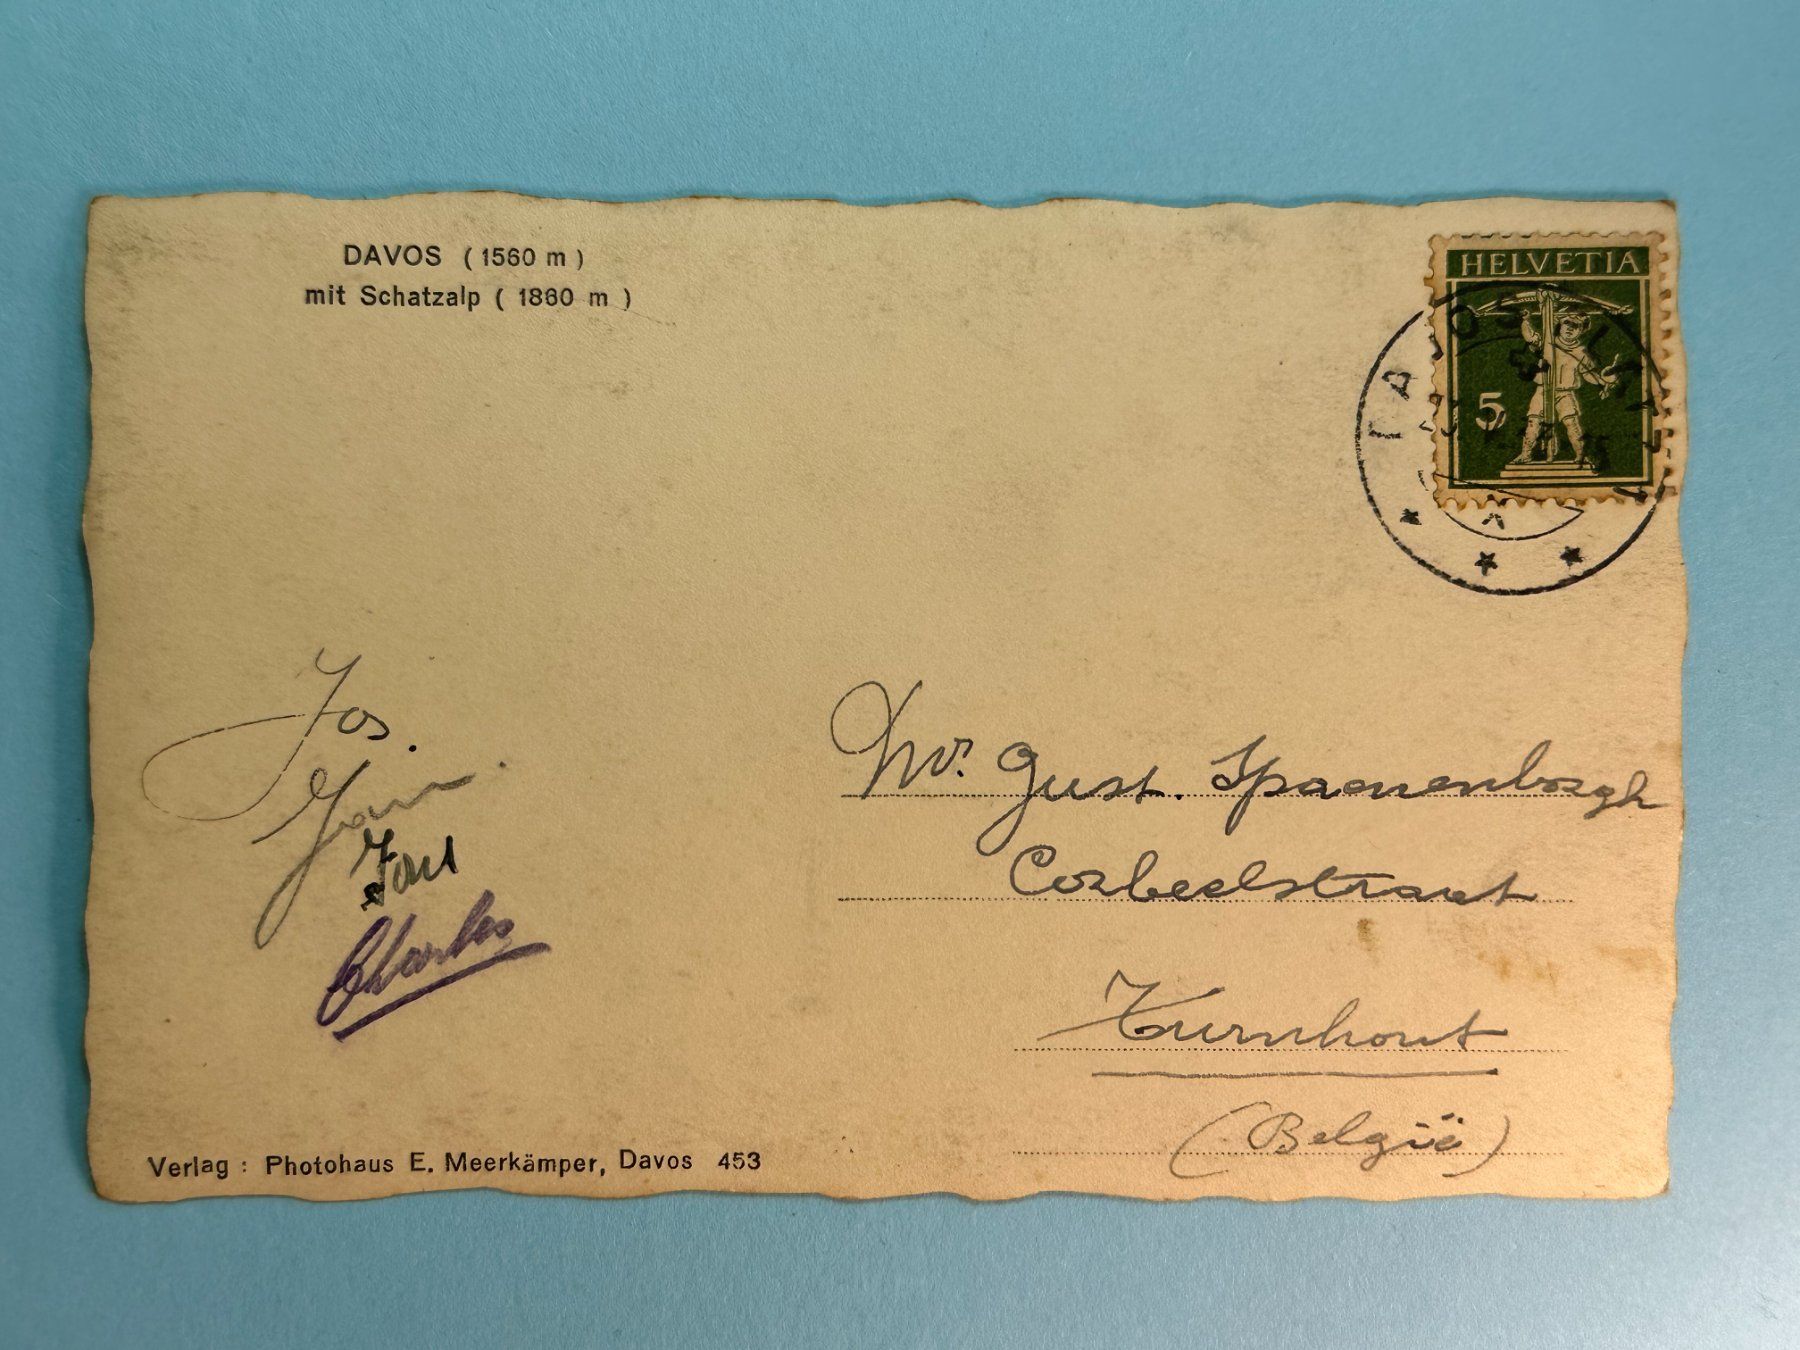 DAVOS (1560 m)
mit Schatzalp (1860 m)
HELVETIA
5
DAVOS PLATZ
Jos.
Jan
Charles
Mr. Gust. Spaenenborgh
Corbeelstraat
Turnhout
(België)
Verlag: Photohaus E. Meerkämper, Davos 453